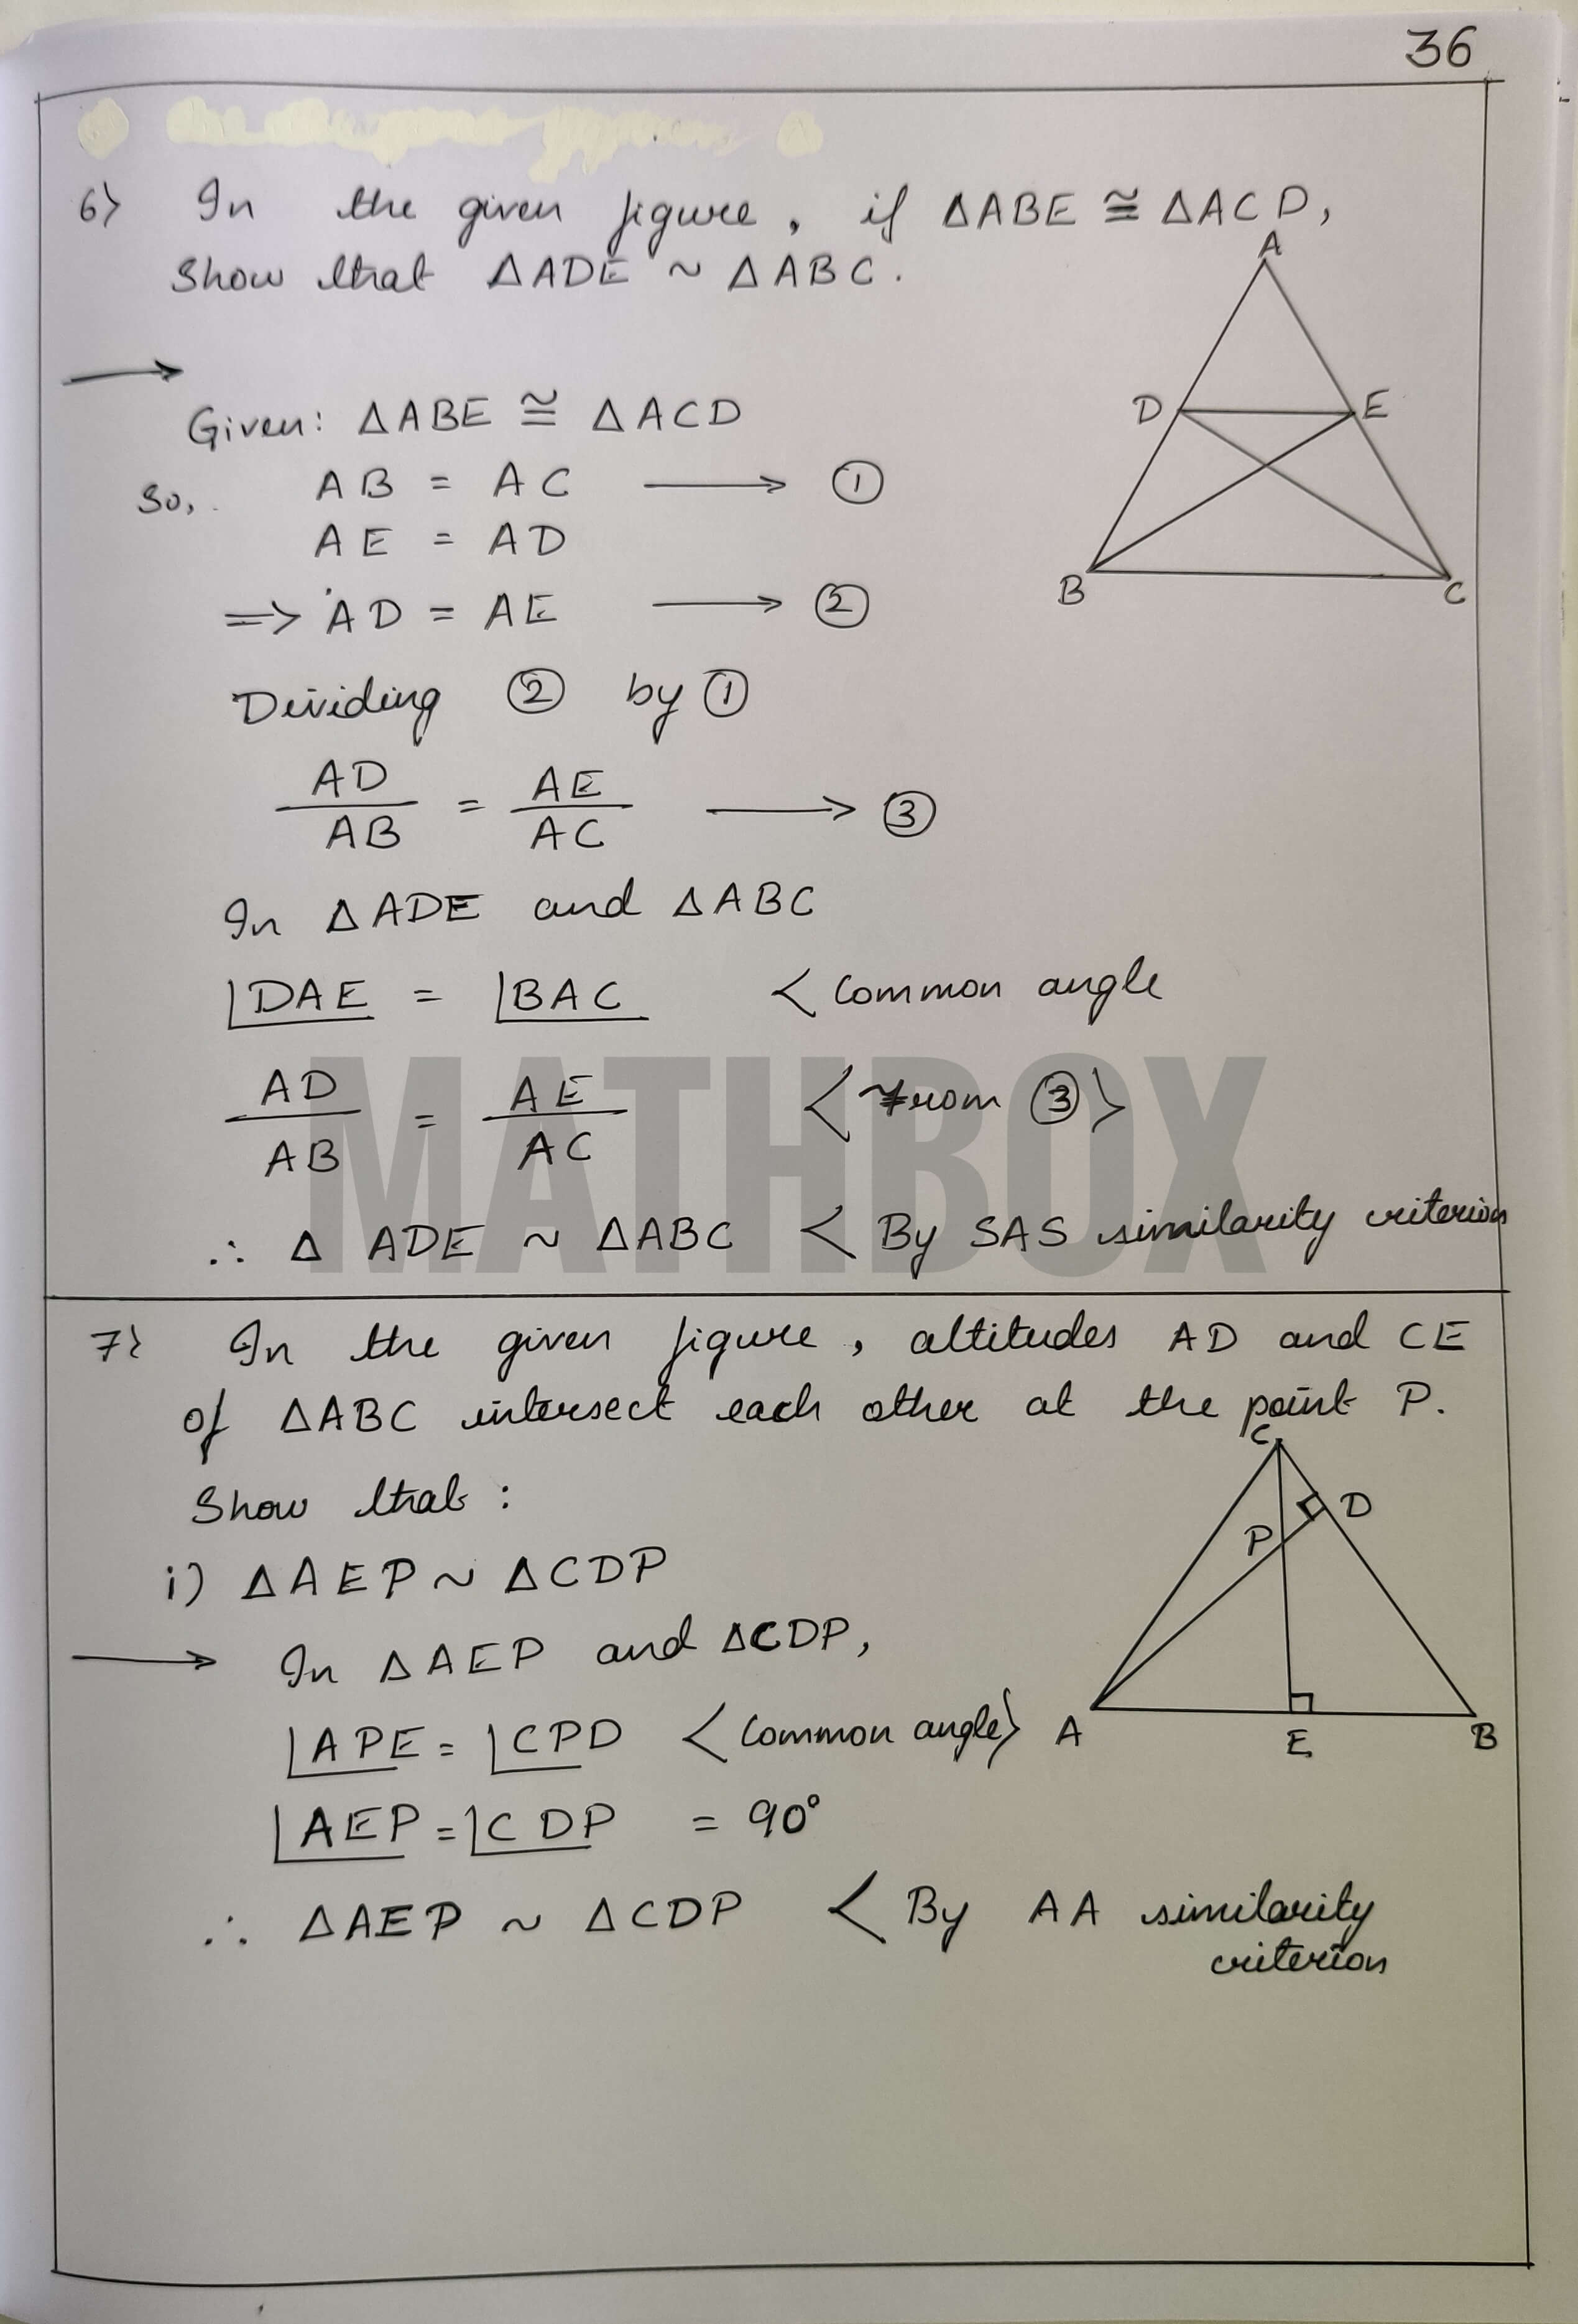 36
6) In the given figure, if ΔABE ≅ ΔACD,
Show that ΔADE ~ ΔABC.
A
D E
B C
→
Given: ΔABE ≅ ΔACD
So, AB = AC → ①
AE = AD
=> AD = AE → ②
Dividing ② by ①
AD/AB = AE/AC → ③
In ΔADE and ΔABC
∠DAE = ∠BAC < Common angle
AD/AB = AE/AC <From ③>
∴ Δ ADE ~ ΔABC < By SAS similarity criterion
MATHBOX
7) In the given figure, altitudes AD and CE
of ΔABC intersect each other at the point P.
Show that:
C
D
P
A E B
i) ΔAEP ~ ΔCDP
→ In ΔAEP and ΔCDP,
∠APE = ∠CPD <Common angle>
∠AEP = ∠CDP = 90°
∴ ΔAEP ~ ΔCDP < By AA similarity
criterion